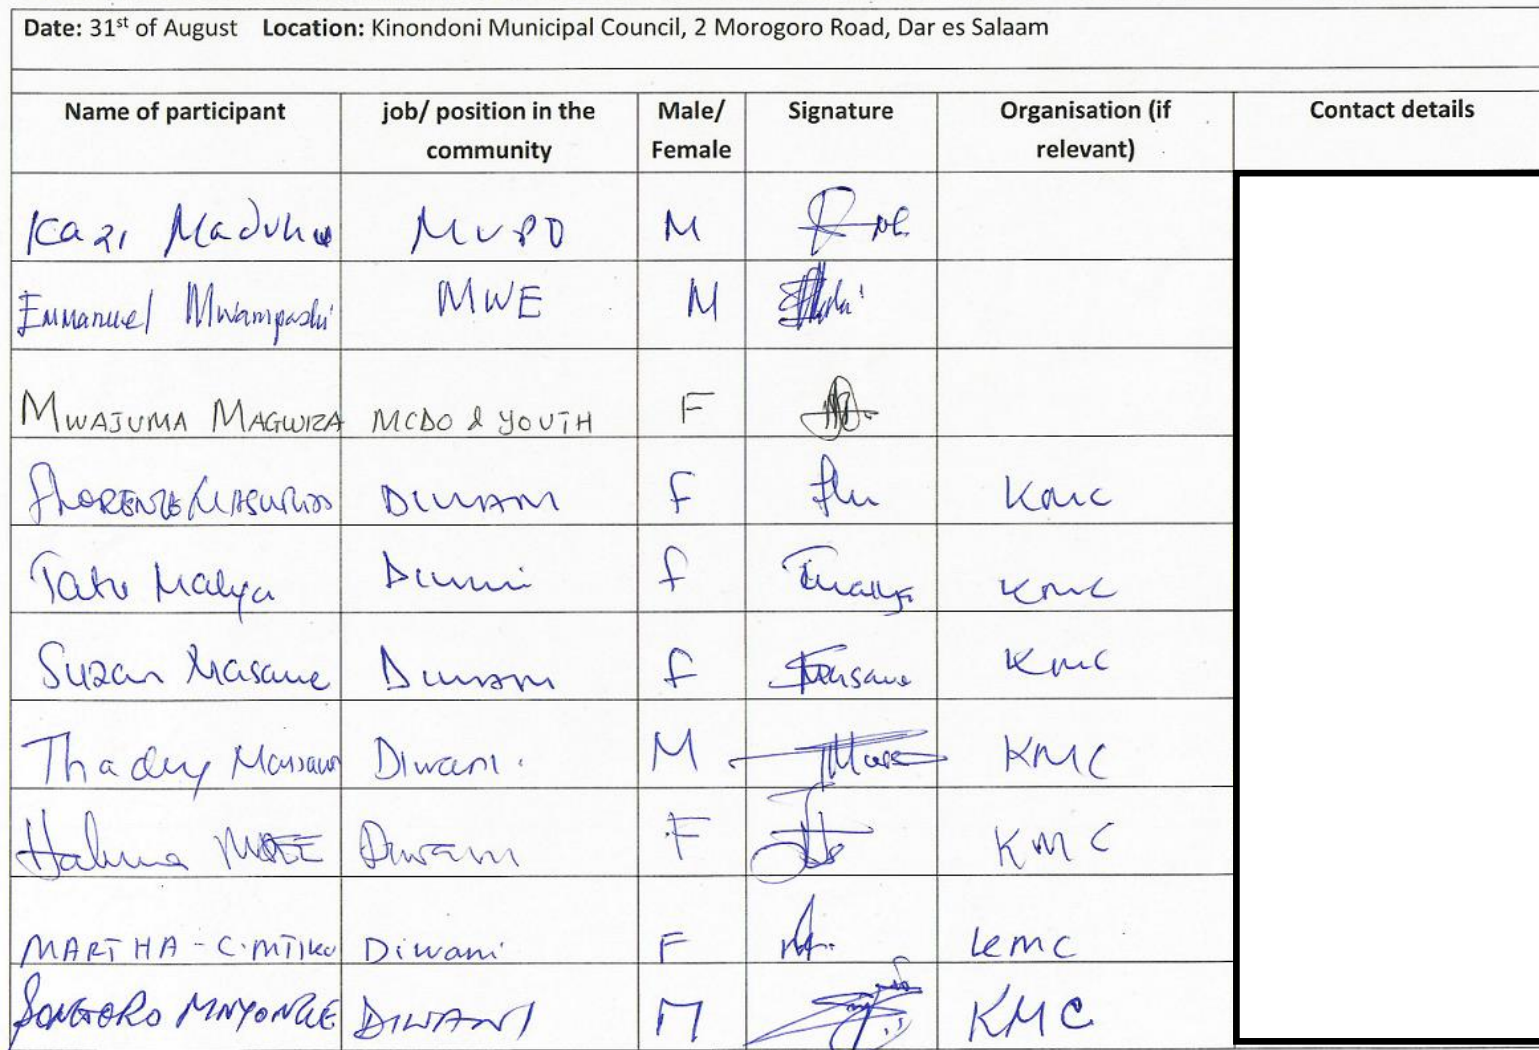 Date: 31st of August Location: Kinondoni Municipal Council, 2 Morogoro Road, Dar es Salaam
Name of participant job/ position in the community Male/ Female Signature Organisation (if relevant) Contact details
Kazi Maduhu M
Emmanuel Mwampashi MWE M
MWAJUMA MAGWIZA MCDO & YOUTH F
F KMC
Tatu Malya F KMC
Suzan Masawe F KMC
Thadey Diwani M KMC
Halima Diwani F KMC
MARTHA - C. MTIKU Diwani F KMC
SONGORO MNYONGE DIWANI M KMC